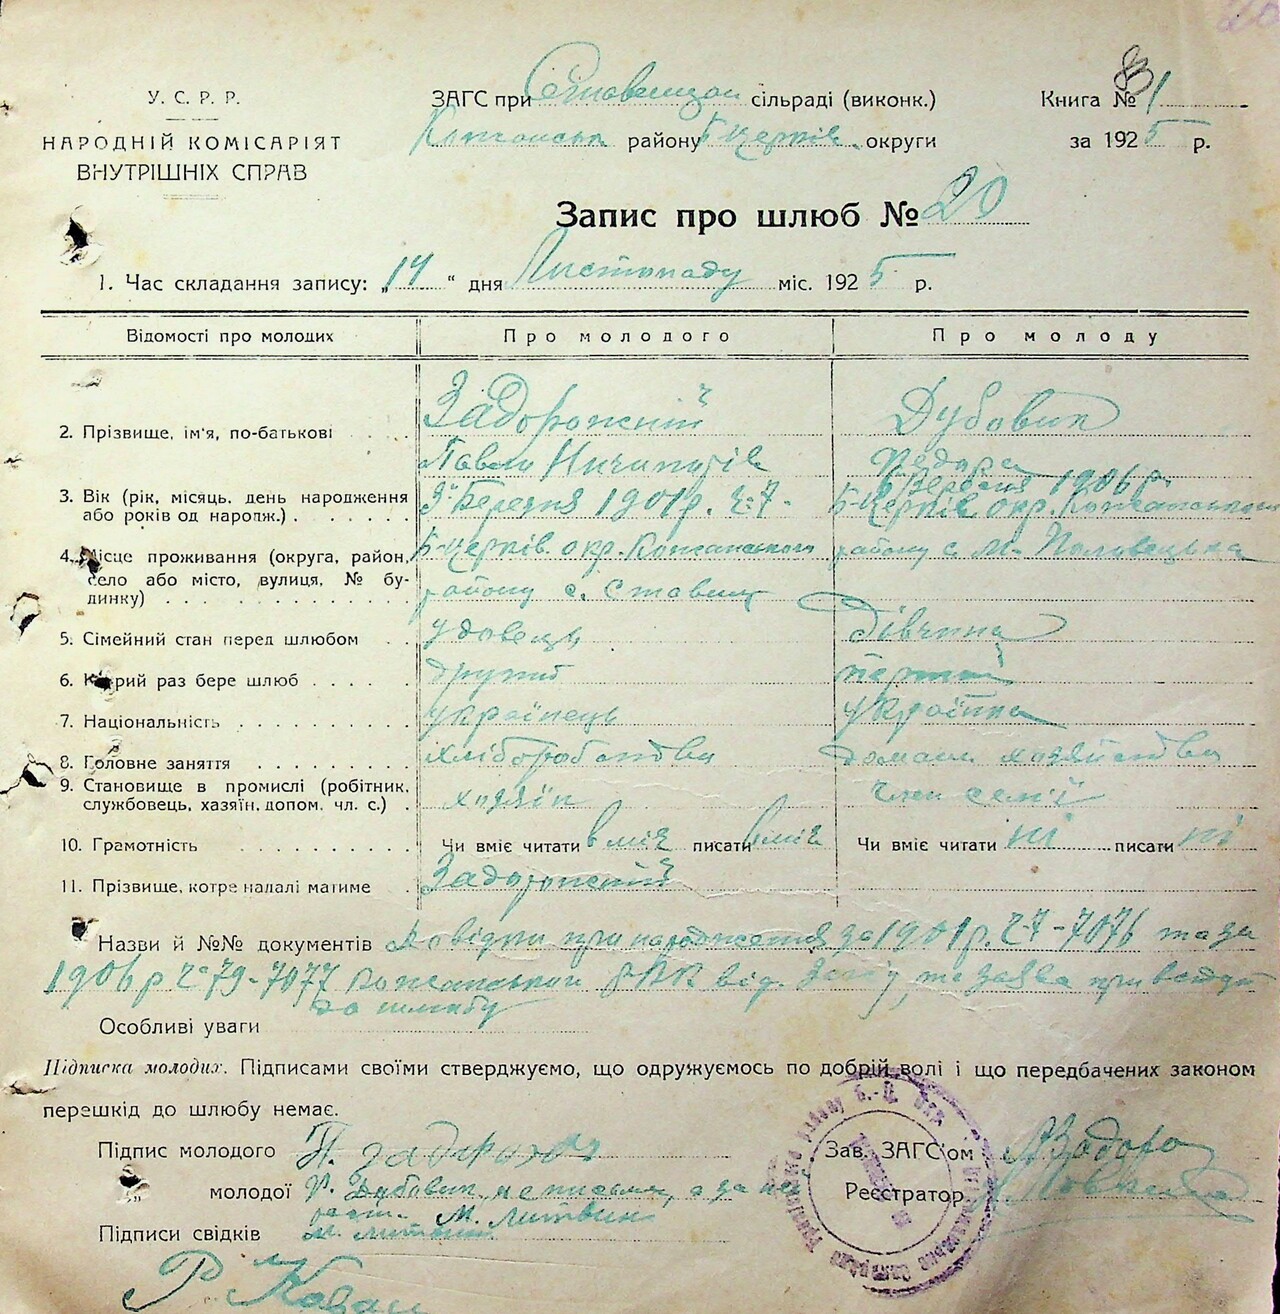 У. С. Р. Р.
НАРОДНІЙ КОМІСАРІЯТ
ВНУТРІШНІХ СПРАВ
ЗАГС при сільраді (виконк.)
району Б Церків. округи
Книга № 1
за 1925 р.
Запис про шлюб № 20
1. Час складання запису: „14“ дня Листопаду міс. 1925 р.
Відомості про молодих Про молодого Про молоду
2. Прізвище, ім'я, по-батькові . . . . Задорожний Дубовик
Павло Ничипорів
3. Вік (рік, місяць, день народження 3 Березня 1901 р. ч. 7 - Вересня 1906 р.
або років од народж.) . . . . . . . . Б-Церків окр. Кожанського
4. Місце проживання (округа, район, Б-Церків. окр. Кожанського району с.
село або місто, вулиця, № бу- району с.
динку) . . . . . . . . . . . .
5. Сімейний стан перед шлюбом . . удовець дівчина
6. Котрий раз бере шлюб . . . . другий перший
7. Національність . . . . . . . . . українець українка
8. Головне заняття . . . . . . . хліборобство домашн хазяйство
9. Становище в промислі (робітник,
службовець, хазяїн, допом. чл. с.) . хазяїн член семʼї
10. Грамотність . . . . . . . . . . Чи вміє читати вміє писати вміє Чи вміє читати ні писати ні
11. Прізвище, котре надалі матиме . Задорожний
Назви й №№ документів довідки при народження за 1901 р. ч 7-7076 та за
1906 р ч 79-7077 Кожанський РВК від. та заява при вступі
до шлюбу
Особливі уваги
Підписка молодих. Підписами своїми стверджуємо, що одружуємось по добрій волі і що передбачених законом
перешкід до шлюбу немає.
Підпис молодого П.
Зав. ЗАГС'ом
„ молодої Дубовик, не письмена, а за неї
Реєстратор
расп. М. Литвин
Підписи свідків М. Литвин